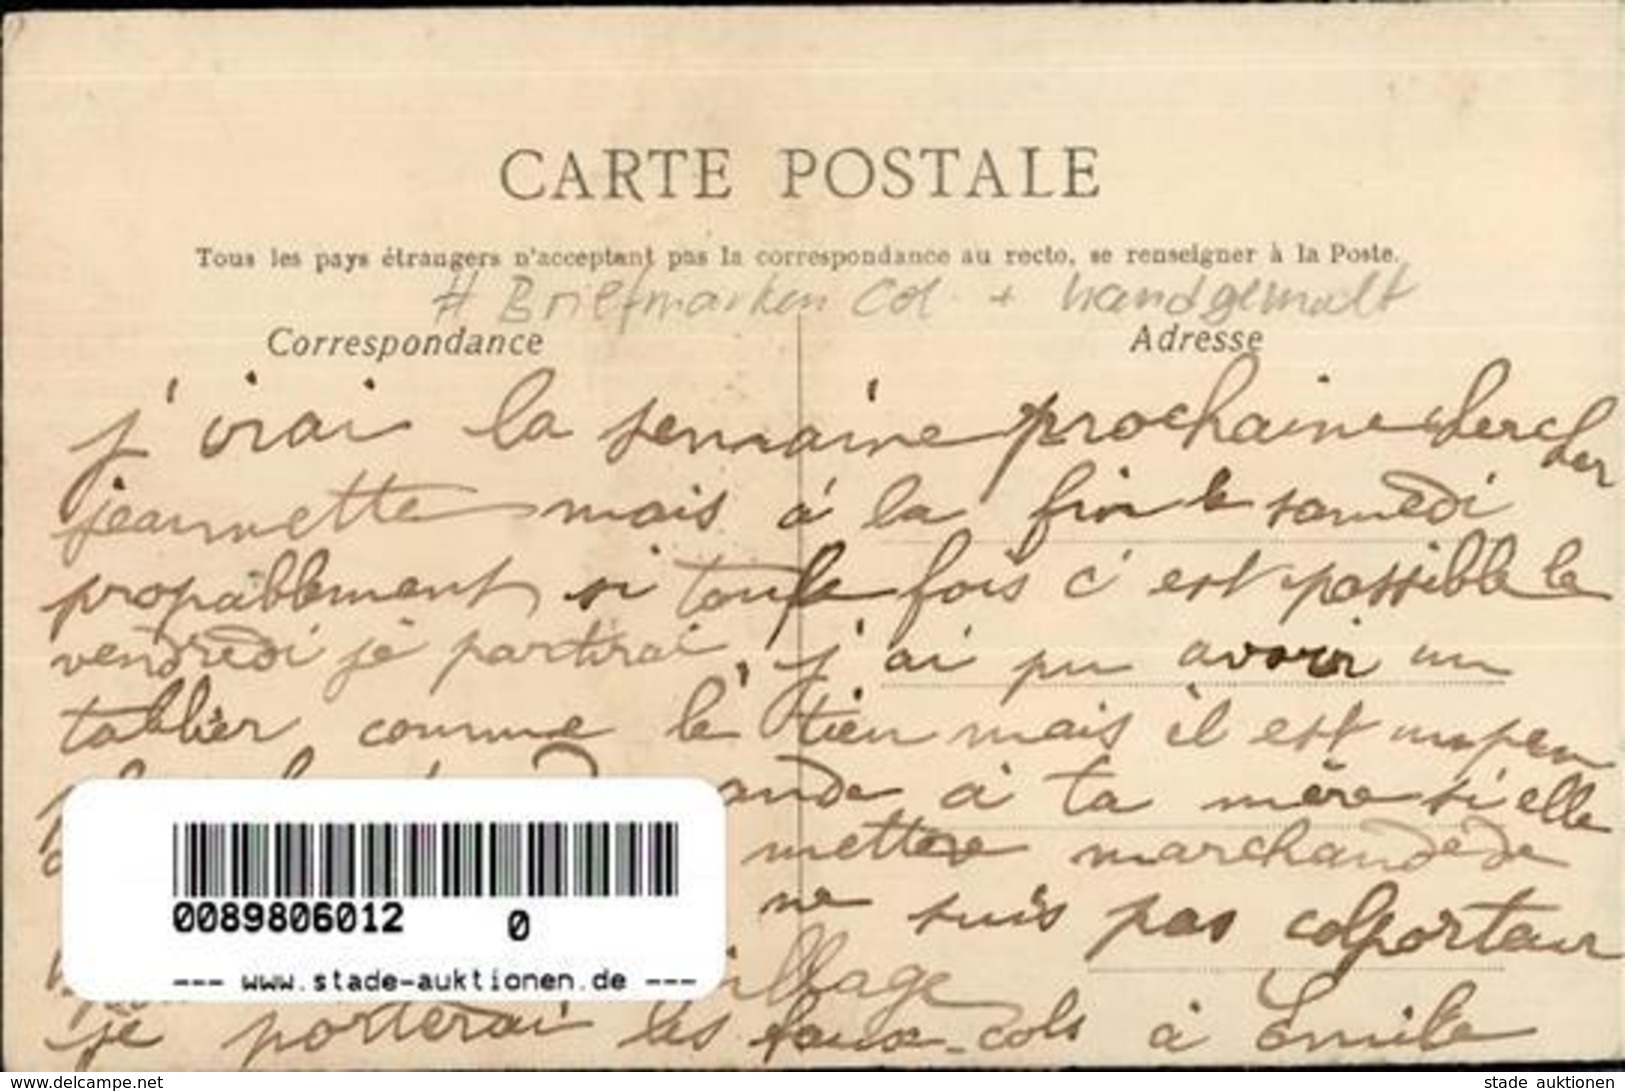 CARTE POSTALE
Tous les pays étrangers n'acceptent pas la correspondance au recto, se renseigner à la Poste.
# Briefmarken Col + handgemalt
Correspondance
Adresse
j'irai la semaine prochaine chercher
jeannette mais à la fin le samedi
propablement si toute fois c'est possible le
vendredi je partirai, j'ai pu avoir un
tablier comme le tien mais il est un peu
à ta mère si elle
mettre marchande de
ne suis pas colporteur
village
je porterai les faux-cols à Emile
0089806012 0
--- www.stade-auktionen.de ---
www.delcampe.net
stade auktionen